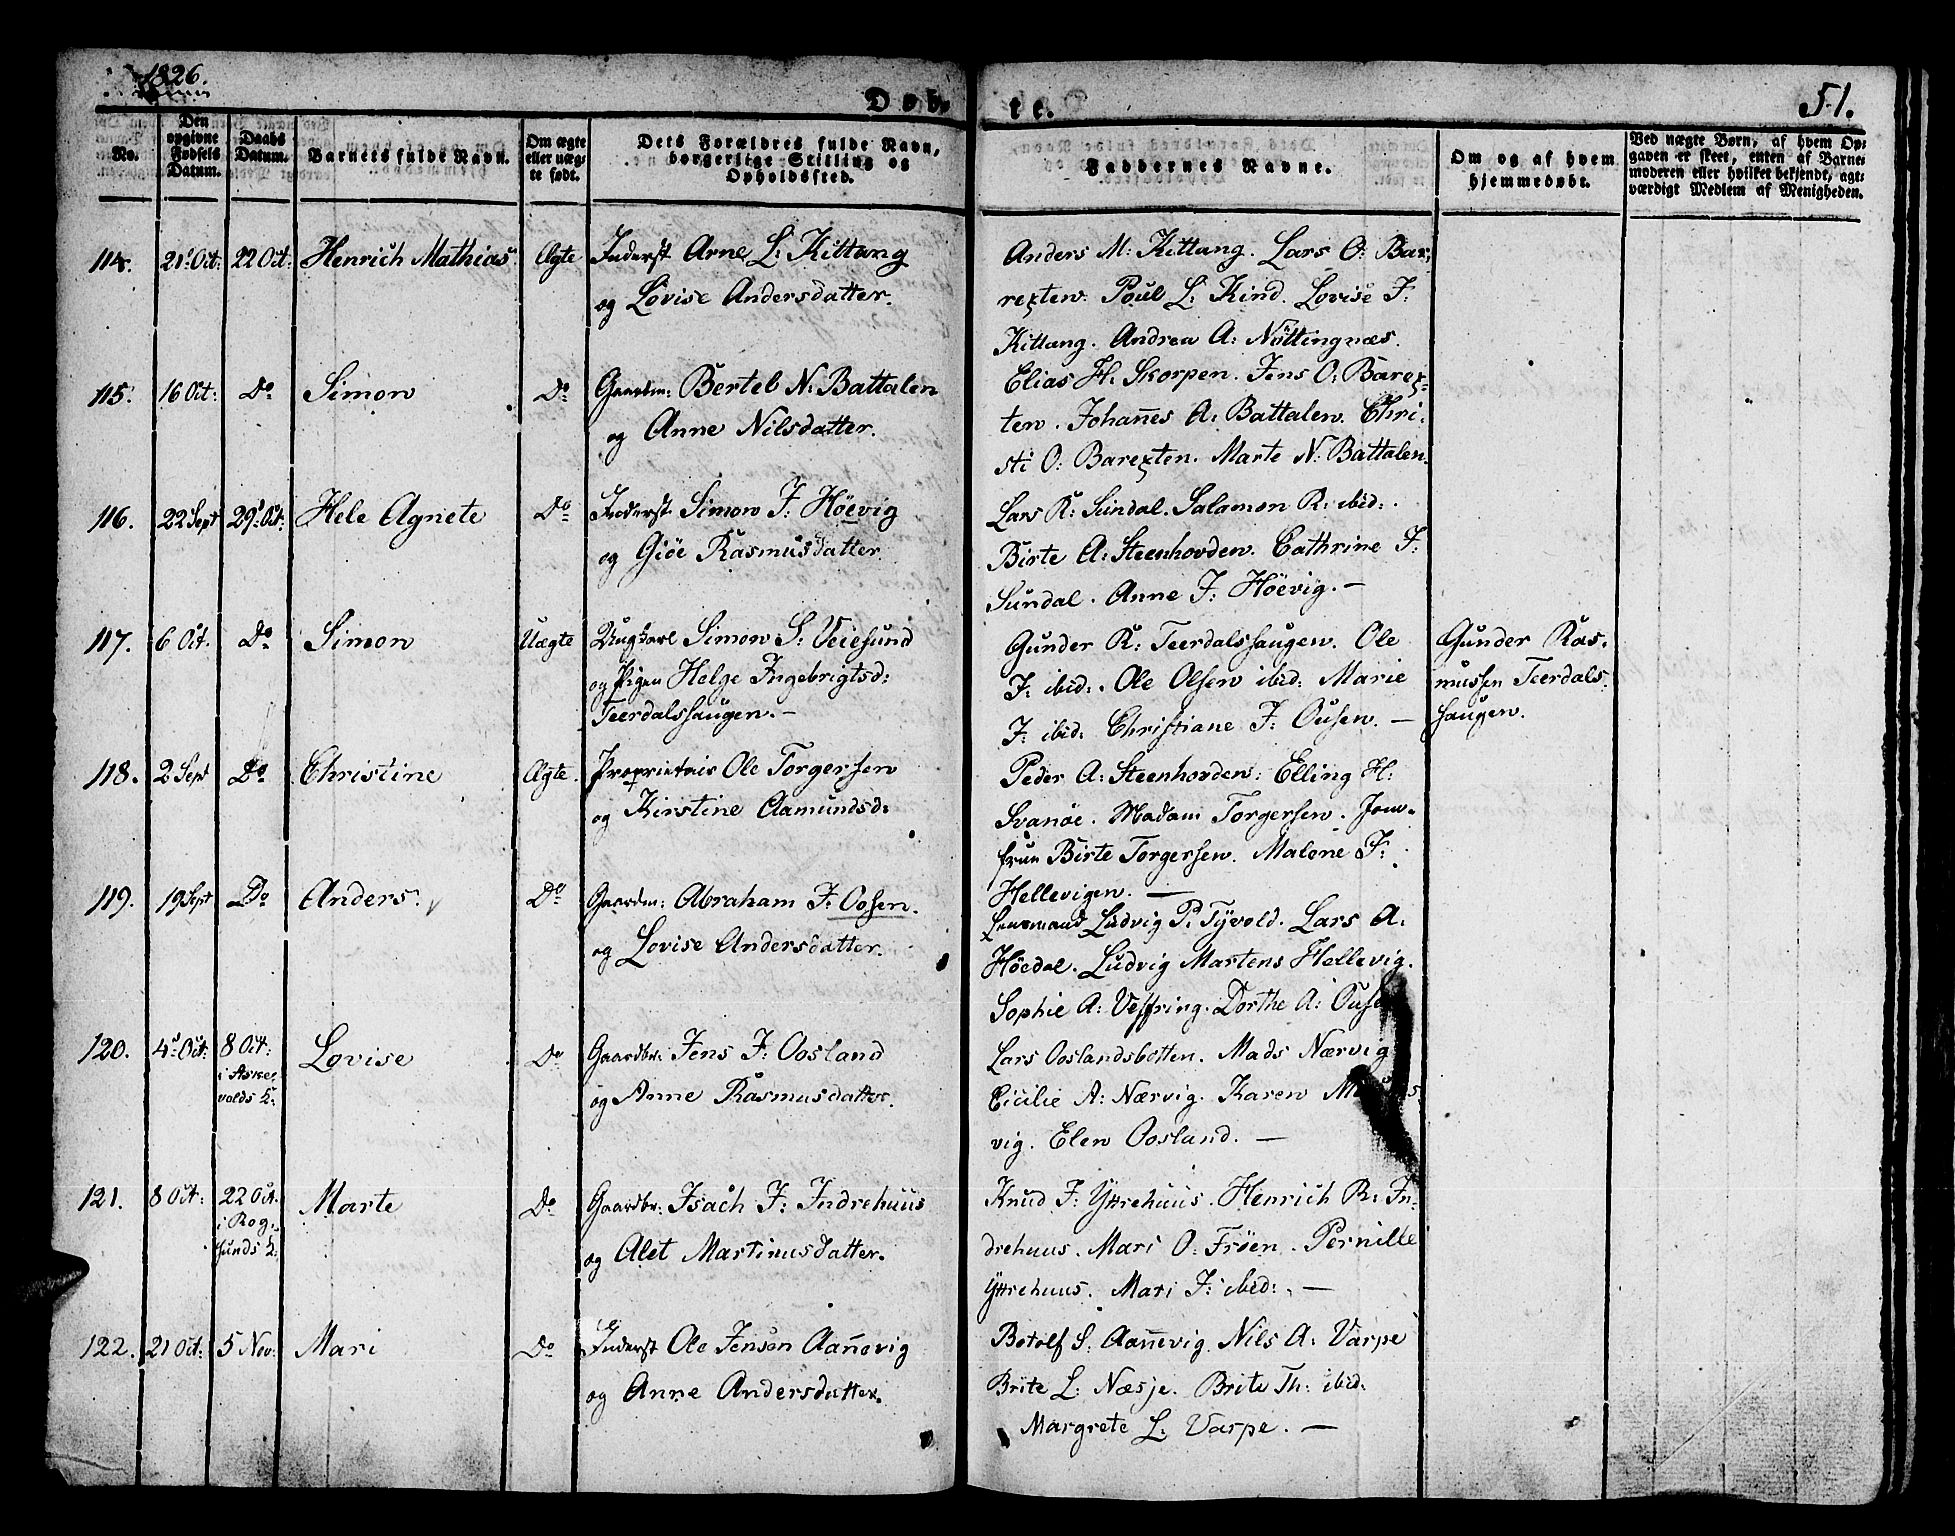 1826.
51.
Døbte.
No.
Den opgivne Fødsels Datum.
Daabs Datum.
Barnets fulde Navn.
Om ægte eller uægte født.
Dets Forældres fulde Navn, borgerlige Stilling og Opholdssted.
Faddernes Navne.
Om og af hvem hjemmedøbt.
Ved uægte Børn, af hvem Opgaven er skeet, enten af Barnemoderen eller hvilket bekjendt, agtværdigt Medlem af Menigheden.
114. 21: Oct: 22 Oct: Henrich Mathias Ægte Inderst Arne L: Kittang
og Lovise Andersdatter.
Anders M: Kittang. Lars O: Ba-
rexten. Poul L: Kind. Lovise J:
Kittang. Andrea A: Nöttingnæs.
115. 16 Oct: Do Simon Do Gaardm: Bertel N: Battalen
og Anne Nilsdatter.
Elias H: Skorpen. Jens O: Barex-
ten. Johañes A: Battalen. Chri-
sti O: Barexten. Marte N: Battalen.
116. 22 Sept 29: Oct: Hele Agnete Do Inderst Simon J: Höevig
og Giöe Rasmusdatter.
Lars R: Sundal. Salamon R: ibid:.
Birte A: Steenhovden. Cathrine J:
Sundal. Anne J: Höevig. —
117. 6 Oct. Do Simon Uægte Ungkarl Simon S: Veiesund
og Pigen Helge Ingebrigtsd:
Teerdalshaugen. —
Gunder R: Teerdalshaugen. Ole
J: ibid:. Ole Olsen ibid: Marie
J: ibid: Christiane J: Ousen. —
Gunder Ras-
mussen Teerdals-
haugen.
118. 2 Sept Do Christine Ægte. Proprietair Ole Torgersen
og Kirstine Aamundsd:
Peder A: Steenhovden: Elling H:
Svanöe. Madam Torgersen. Jom-
fru Birte Torgersen. Malene J:
Hellevigen. —
119. 19 Sept Do Anders. Do Gaardm: Abraham J: Oosen.
og Lovise Andersdatter.
Lensmand Ludvig P: Tyvold. Lars A:
Höedal. Ludvig Martens Hellevig.
Sophie A: Vefring. Dorthe A:
120. 4: Oct: 8 Oct: i Aske-volds K: Lovise Do Gaardbr: Jens J: Oosland
og Anne Rasmusdatter.
Lars Ooslandsbotten. Mads Nærvig
Cicilie A: Nærvig. Karen
vig. Elen Oosland. —
121. 8 Oct: 22 Oct. i Rog-sunds K: Marte Do Gaardbr: Isach J: Indrehuus
og Alet Martinusdatter.
Knud J: Yttrehuus. Henrich R: In-
drehuus. Mari O: Fröen. Pernille
Yttrehuus. Mari J: ibid:. —
122. 21 Oct: 5 Nov: Mari Do Inderst Ole Jensen Aañevig
og Anne Andersdatter.
Botolf S: Aañevig. Nils A: Varpe
Brite L: Næsje. Brite Th: ibid.
Margrete L: Varpe. —